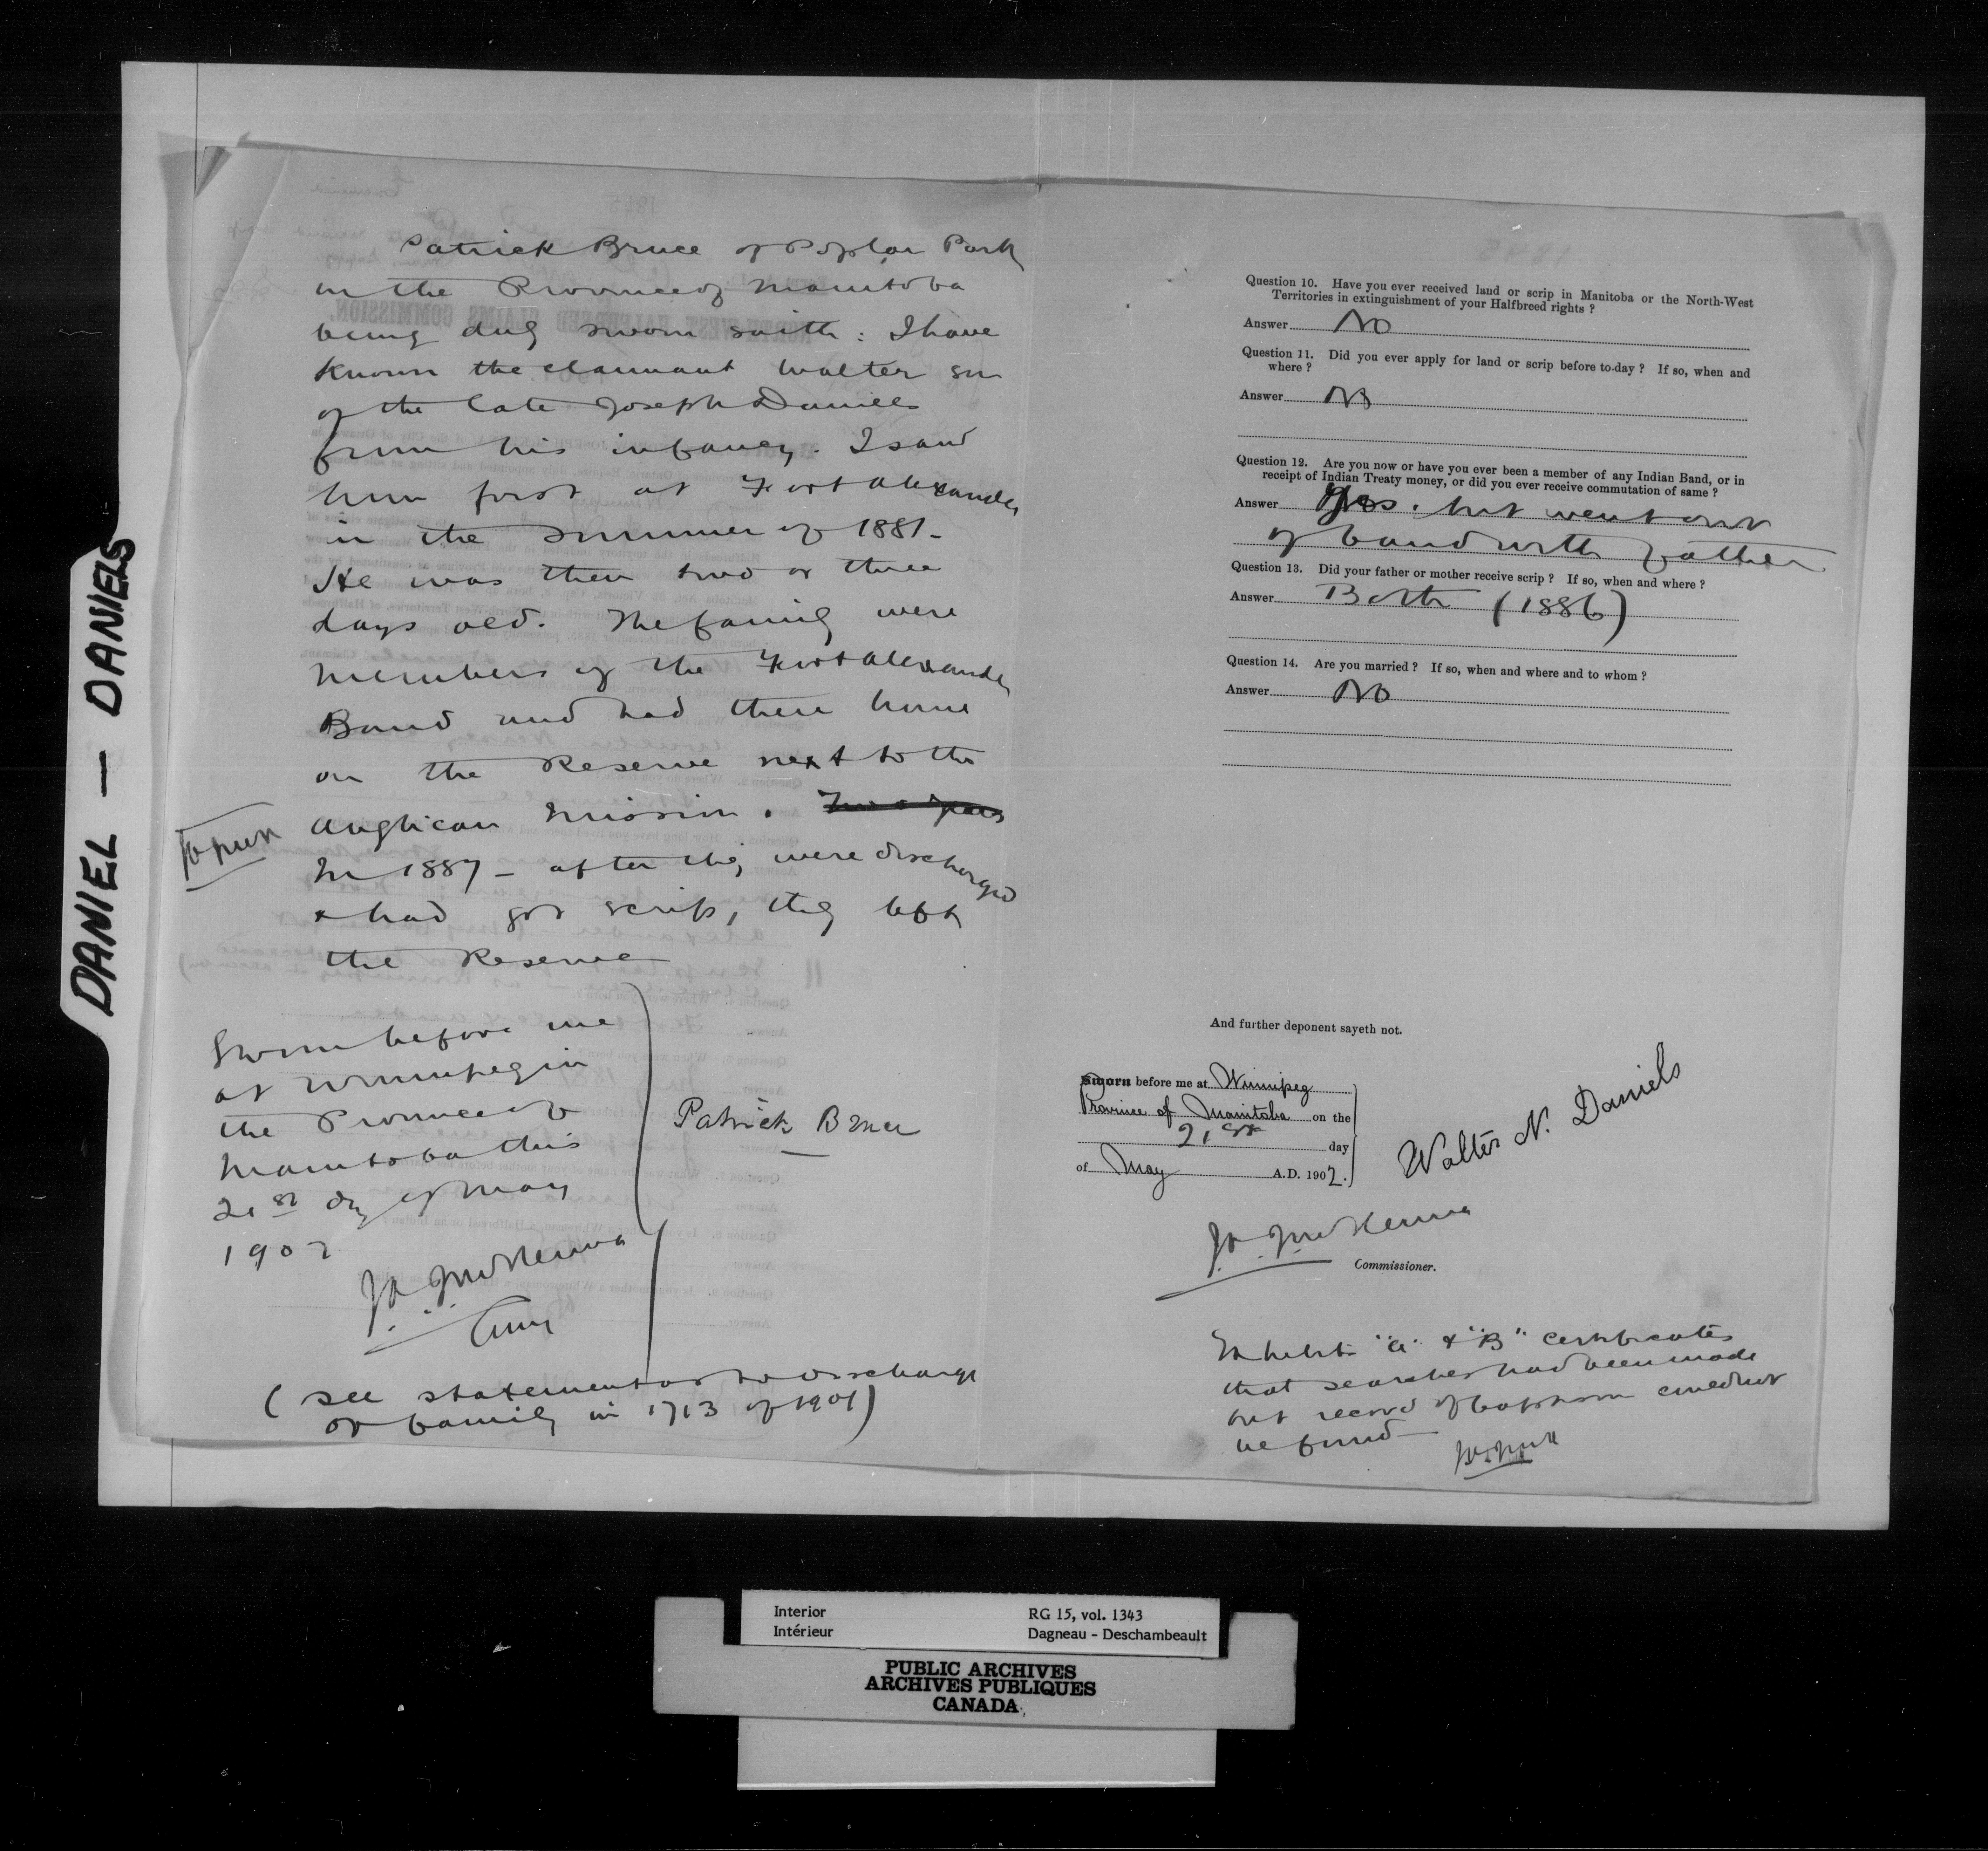 DANIEL — DANIELS
Patrick Bruce of Poplar Park
in the Province of Manitoba
being duly sworn saith: I have
known the claimant Walter son
of the late Joseph Daniels
from his infancy. I saw
him first at Fort Alexander
in the summer of 1881.
He was then two or three
days old. The family were
members of the Fort Alexander
Band and had their home
on the Reserve next to the
Anglican Mission. Two years
In 1887 - after they were discharged
& had got scrip, they left
the Reserve
Sworn before me
at Winnipeg in
the Province of
Manitoba this
21st day of May
1902
Patrick Bruce
J.A.J. McKenna
Comr
(see statement as to discharge
of family in 1713 of 1901)
Question 10. Have you ever received land or scrip in Manitoba or the North-West
Territories in extinguishment of your Halfbreed rights ?
Answer No
Question 11. Did you ever apply for land or scrip before to-day ? If so, when and
where ?
Answer No
Question 12. Are you now or have you ever been a member of any Indian Band, or in
receipt of Indian Treaty money, or did you ever receive commutation of same ?
Answer Yes. but went out
of band with father
Question 13. Did your father or mother receive scrip ? If so, when and where ?
Answer Both (1886)
Question 14. Are you married ? If so, when and where and to whom ?
Answer No
And further deponent sayeth not.
Sworn before me at Winnipeg
Province of Manitoba on the
21st day
of May A.D. 1902.
Walter N. Daniels
J.A.J. McKenna
Commissioner.
Exhibits "A" & "B" certificates
that searches had been made
but record of baptism could not
be found
Interior
Intérieur
RG 15, vol. 1343
Dagneau - Deschambeault
PUBLIC ARCHIVES
ARCHIVES PUBLIQUES
CANADA